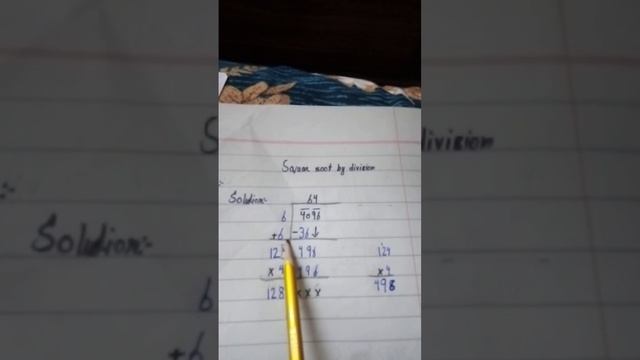 Square root by division
Solution:-
64
6 4096
+6 -36↓
12 496
x 4 496
128 x x x
124
x4
496